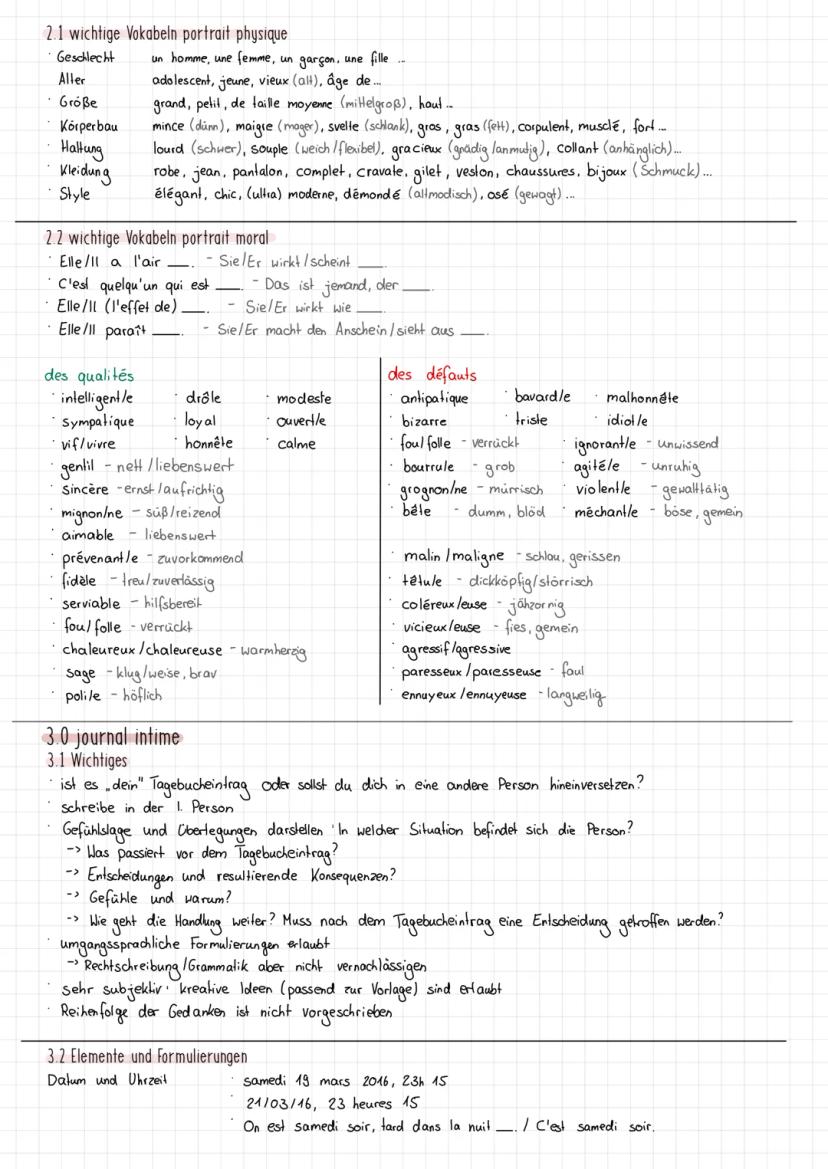 2.1 wichtige Vokabeln portrait physique
· Geschlecht un homme, une femme, un garçon, une fille ...
Alter adolescent, jeune, vieux (alt), âge de ...
· Größe grand, petit, de taille moyenne (mittelgroß), haut ...
· Körperbau mince (dünn), maigre (mager), svelte (schlank), gros, gras (fett), corpulent, musclé, fort ...
· Haltung lourd (schwer), souple (weich/flexibel), gracieux (gnädig/anmutig), collant (anhänglich)...
· Kleidung robe, jean, pantalon, complet, cravate, gilet, veston, chaussures, bijoux (Schmuck)...
· Style élégant, chic, (ultra) moderne, démondé (altmodisch), osé (gewagt) ...
2.2 wichtige Vokabeln portrait moral
· Elle/Il a l'air ___. - Sie/Er wirkt/scheint ___.
· C'est quelqu'un qui est ___. - Das ist jemand, der ___.
· Elle/Il (l'effet de) ___. - Sie/Er wirkt wie ___.
· Elle/Il paraît ___. - Sie/Er macht den Anschein/sieht aus ___.
des qualités
· intelligent/e · drôle · modeste
· sympatique · loyal · ouvert/e
· vif/vivre · honnête · calme
· gentil - nett/liebenswert
· sincère - ernst/aufrichtig
· mignon/ne - süß/reizend
· aimable - liebenswert
· prévenant/e - zuvorkommend
· fidèle - treu/zuverlässig
· serviable - hilfsbereit
· fou/folle - verrückt
· chaleureux/chaleureuse - warmherzig
· sage - klug/weise, brav
· poli/e - höflich
des défauts
· antipatique · bavard/e · malhonnête
· bizarre · triste · idiot/e
· fou/folle - verrückt · ignorant/e - unwissend
· bourru/e - grob · agité/e - unruhig
· grognon/ne - mürrisch · violent/e - gewalttätig
· bête - dumm, blöd · méchant/e - böse, gemein
· malin/maligne - schlau, gerissen
· têtu/e - dickköpfig/störrisch
· coléreux/euse - jähzornig
· vicieux/euse - fies, gemein
· agressif/agressive
· paresseux/paresseuse - faul
· ennuyeux/ennuyeuse - langweilig
3.0 journal intime
3.1 Wichtiges
· ist es „dein" Tagebucheintrag oder sollst du dich in eine andere Person hineinversetzen?
· schreibe in der 1. Person
· Gefühlslage und Überlegungen darstellen · In welcher Situation befindet sich die Person?
-> Was passiert vor dem Tagebucheintrag?
-> Entscheidungen und resultierende Konsequenzen?
-> Gefühle und warum?
-> Wie geht die Handlung weiter? Muss nach dem Tagebucheintrag eine Entscheidung getroffen werden?
· umgangssprachliche Formulierungen erlaubt
-> Rechtschreibung/Grammatik aber nicht vernachlässigen
· sehr subjektiv · kreative Ideen (passend zur Vorlage) sind erlaubt
· Reihenfolge der Gedanken ist nicht vorgeschrieben
3.2 Elemente und Formulierungen
Datum und Uhrzeit · samedi 19 mars 2016, 23h 15
· 21/03/16, 23 heures 15
· On est samedi soir, tard dans la nuit ___. / C'est samedi soir.